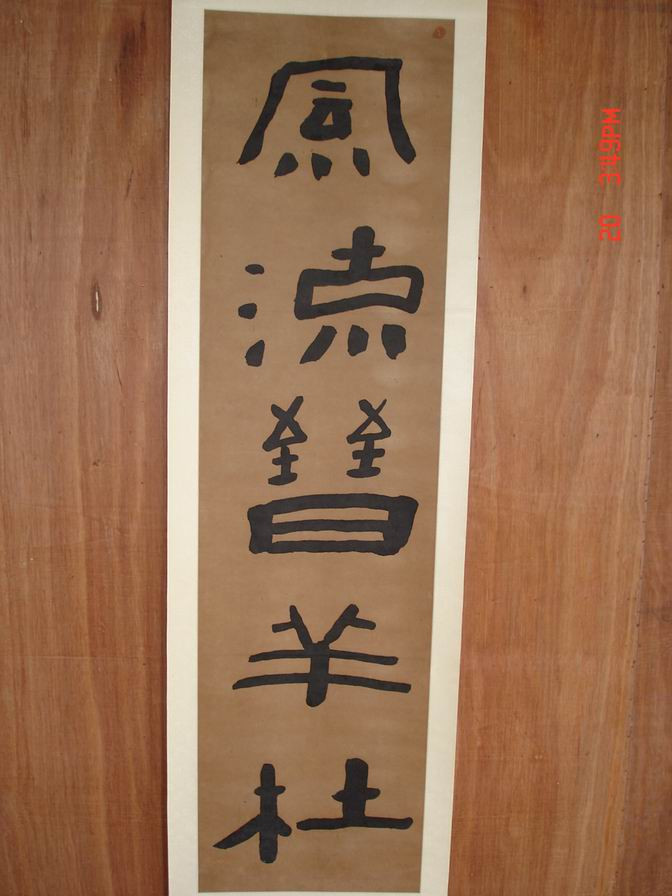 風流晉羊杜
20 3:49PM